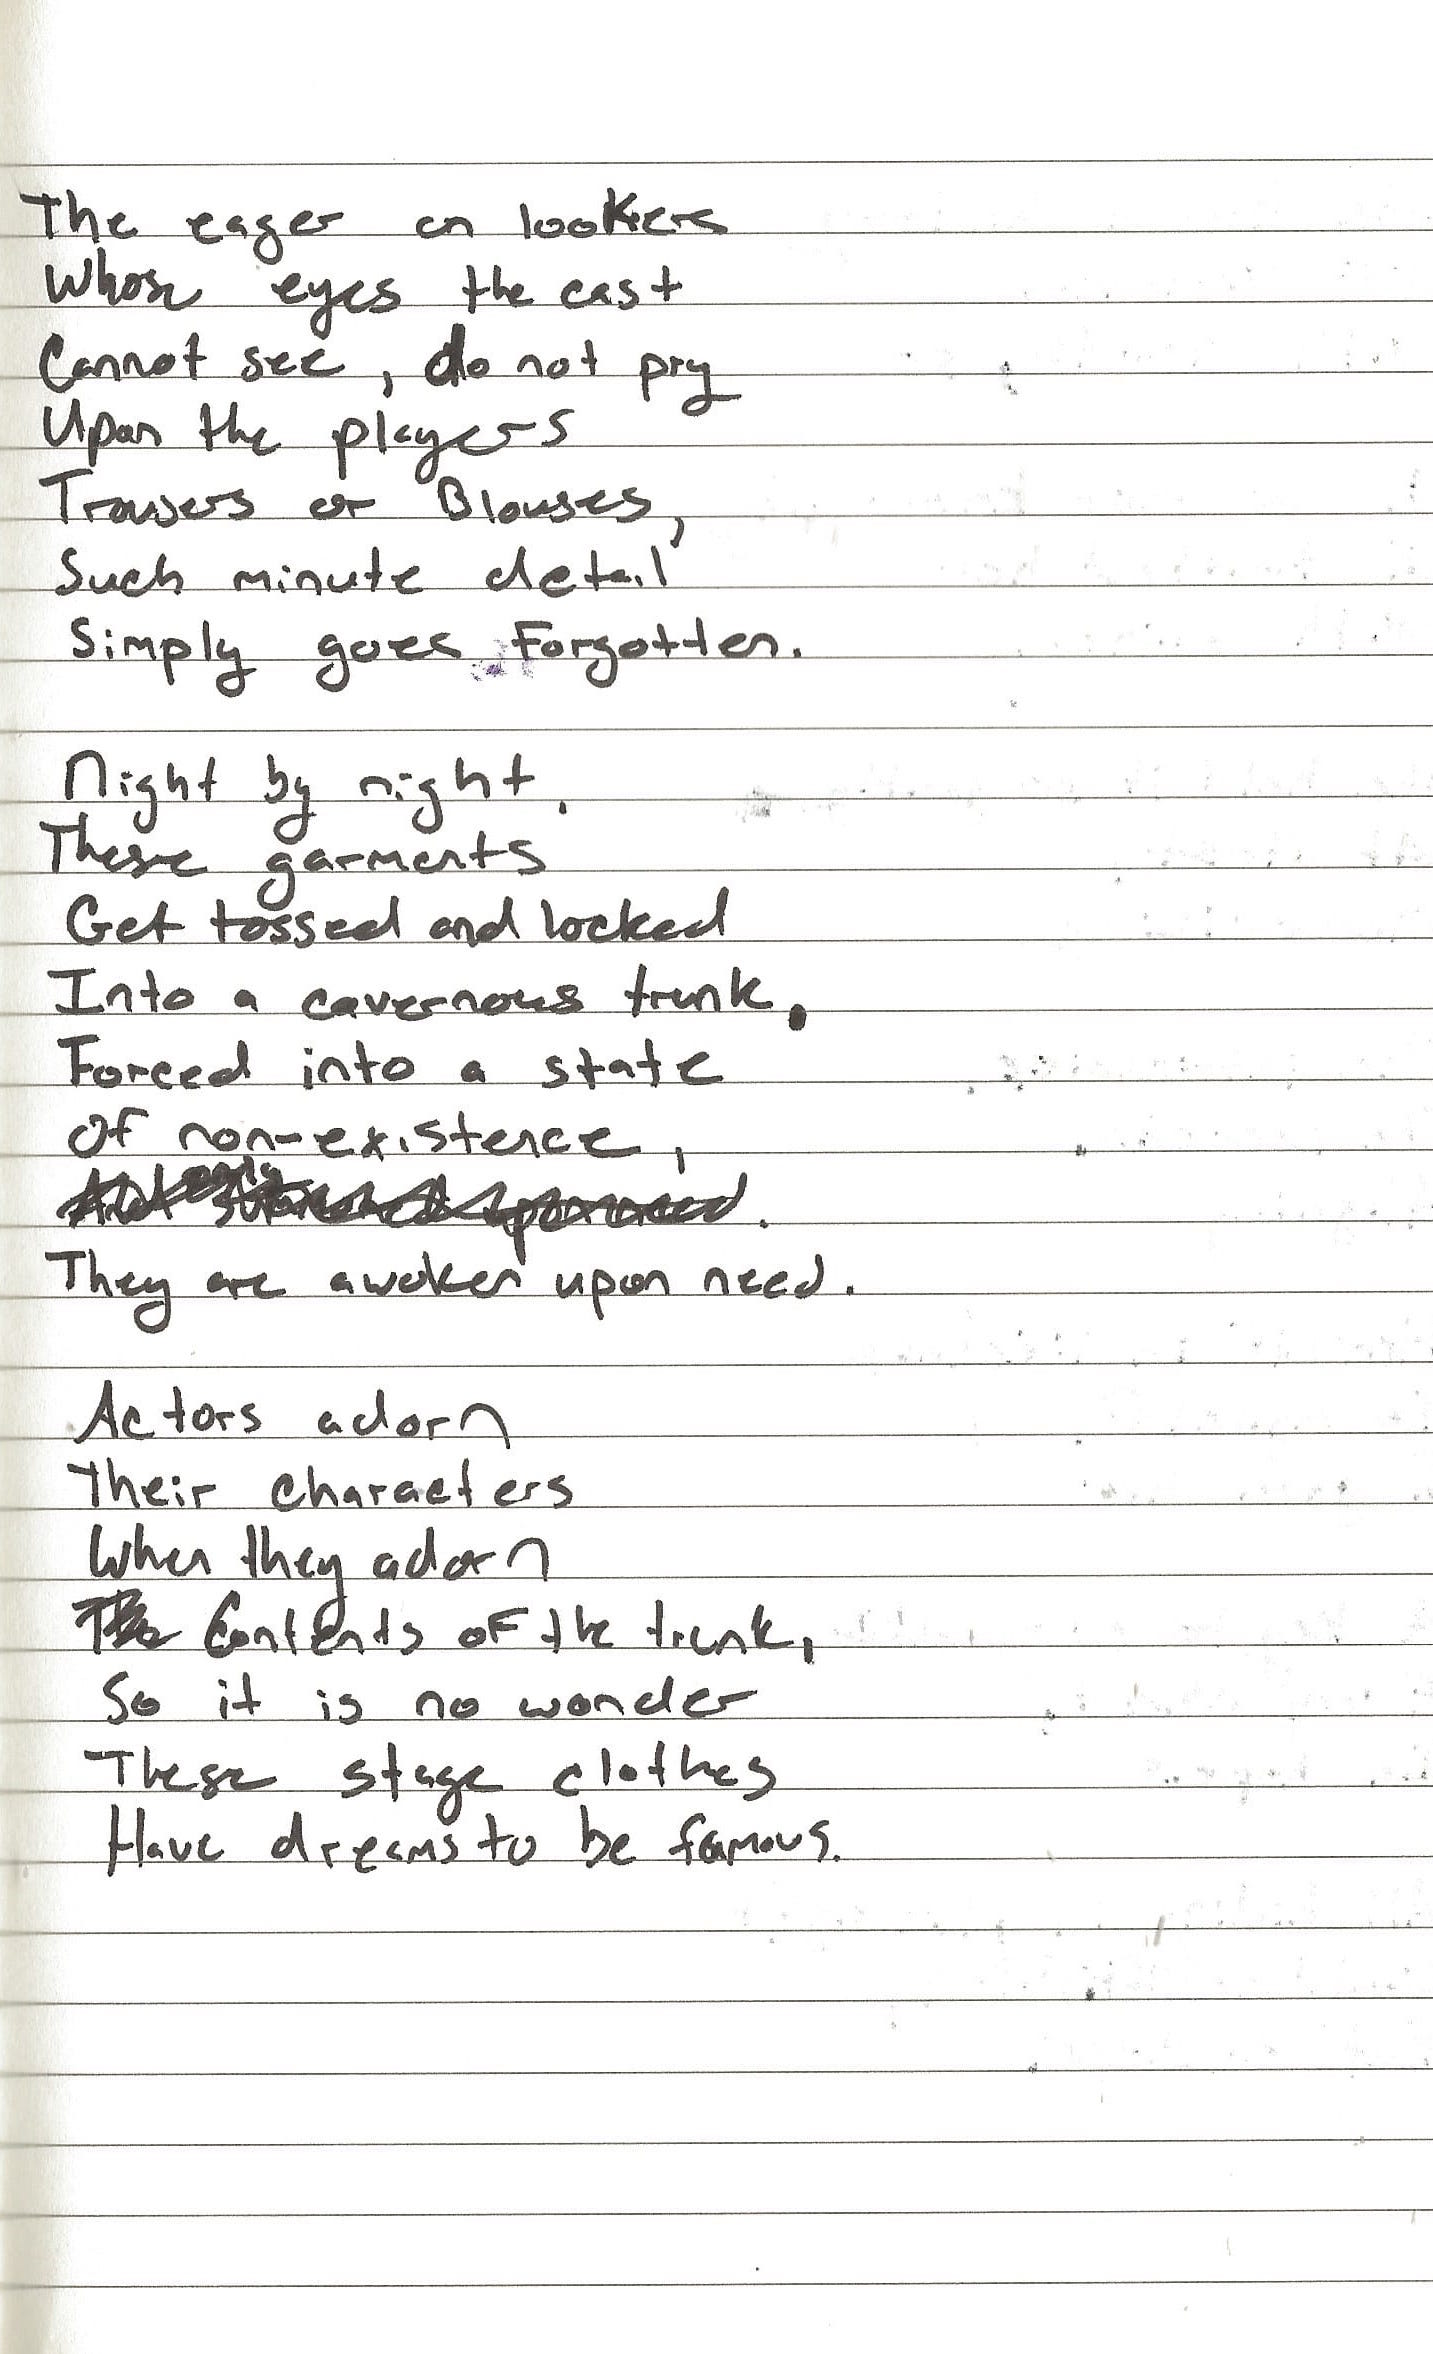 The eager on lookers
Whose eyes the cast
Cannot see, do not pry
Upon the players
Trousers or Blouses,
Such minute detail
Simply goes Forgotten.
Night by night,
These garments
Get tossed and locked
Into a cavernous trunk.
Forced into a state
Of non-existence,
They are awoken upon need.
Actors adorn
Their characters
When they adorn
The Contents of the trunk,
So it is no wonder
These stage clothes
Have dreams to be famous.